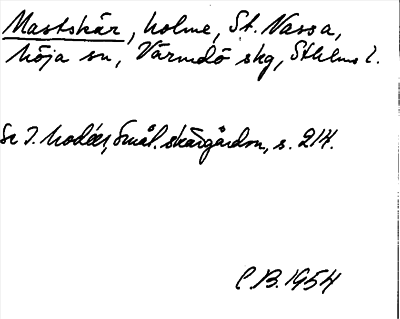 Mastskär, holme, St. Nassa,
Möja sn, Värmdö skg, Sthlms l.
Se I. Modéer, Smål. skärgårdsn, s. 214.
C.B. 1954